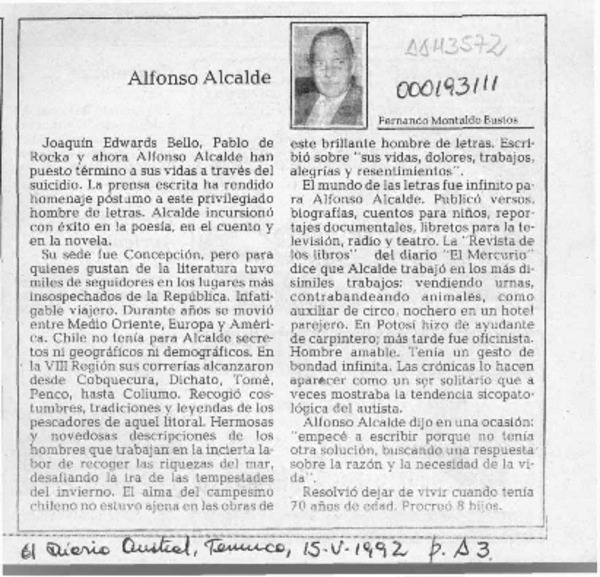 Alfonso Alcalde
AAH3572
000193111
Fernando Montalde Bustos
Joaquín Edwards Bello, Pablo de
Rocka y ahora Alfonso Alcalde han
puesto término a sus vidas a través del
suicidio. La prensa escrita ha rendido
homenaje póstumo a este privilegiado
hombre de letras. Alcalde incursionó
con éxito en la poesía, en el cuento y
en la novela.
Su sede fue Concepción, pero para
quienes gustan de la literatura tuvo
miles de seguidores en los lugares más
insospechados de la República. Infati-
gable viajero. Durante años se movió
entre Medio Oriente, Europa y Améri-
ca. Chile no tenía para Alcalde secre-
tos ni geográficos ni demográficos. En
la VIII Región sus correrías alcanzaron
desde Cobquecura, Dichato, Tomé,
Penco, hasta Coliumo. Recogió cos-
tumbres, tradiciones y leyendas de los
pescadores de aquel litoral. Hermosas
y novedosas descripciones de los
hombres que trabajan en la incierta la-
bor de recoger las riquezas del mar,
desafiando la ira de las tempestades
del invierno. El alma del campesino
chileno no estuvo ajena en las obras de
este brillante hombre de letras. Escri-
bió sobre "sus vidas, dolores, trabajos,
alegrías y resentimientos".
El mundo de las letras fue infinito pa-
ra Alfonso Alcalde. Publicó versos,
biografías, cuentos para niños, repor-
tajes documentales, libretos para la te-
levisión, radio y teatro. La "Revista de
los libros" del diario "El Mercurio"
dice que Alcalde trabajó en los más di-
símiles trabajos: vendiendo urnas,
contrabandeando animales, como
auxiliar de circo, nochero en un hotel
parejero. En Potosí hizo de ayudante
de carpintero; más tarde fue oficinista.
Hombre amable. Tenía un gesto de
bondad infinita. Las crónicas lo hacen
aparecer como un ser solitario que a
veces mostraba la tendencia sicopato-
lógica del autista.
Alfonso Alcalde dijo en una ocasión:
"empecé a escribir porque no tenía
otra solución, buscando una respuesta
sobre la razón y la necesidad de la vi-
da".
Resolvió dejar de vivir cuando tenía
70 años de edad. Procreó 8 hijos.
El Diario Austral, Temuco, 15-V-1992 p. A3.